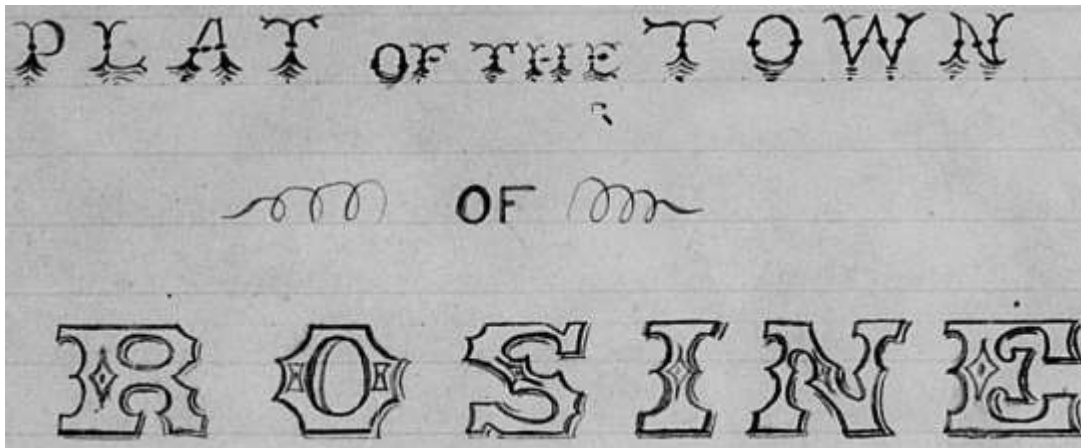 PLAT OF THE TOWN
OF
ROSINE